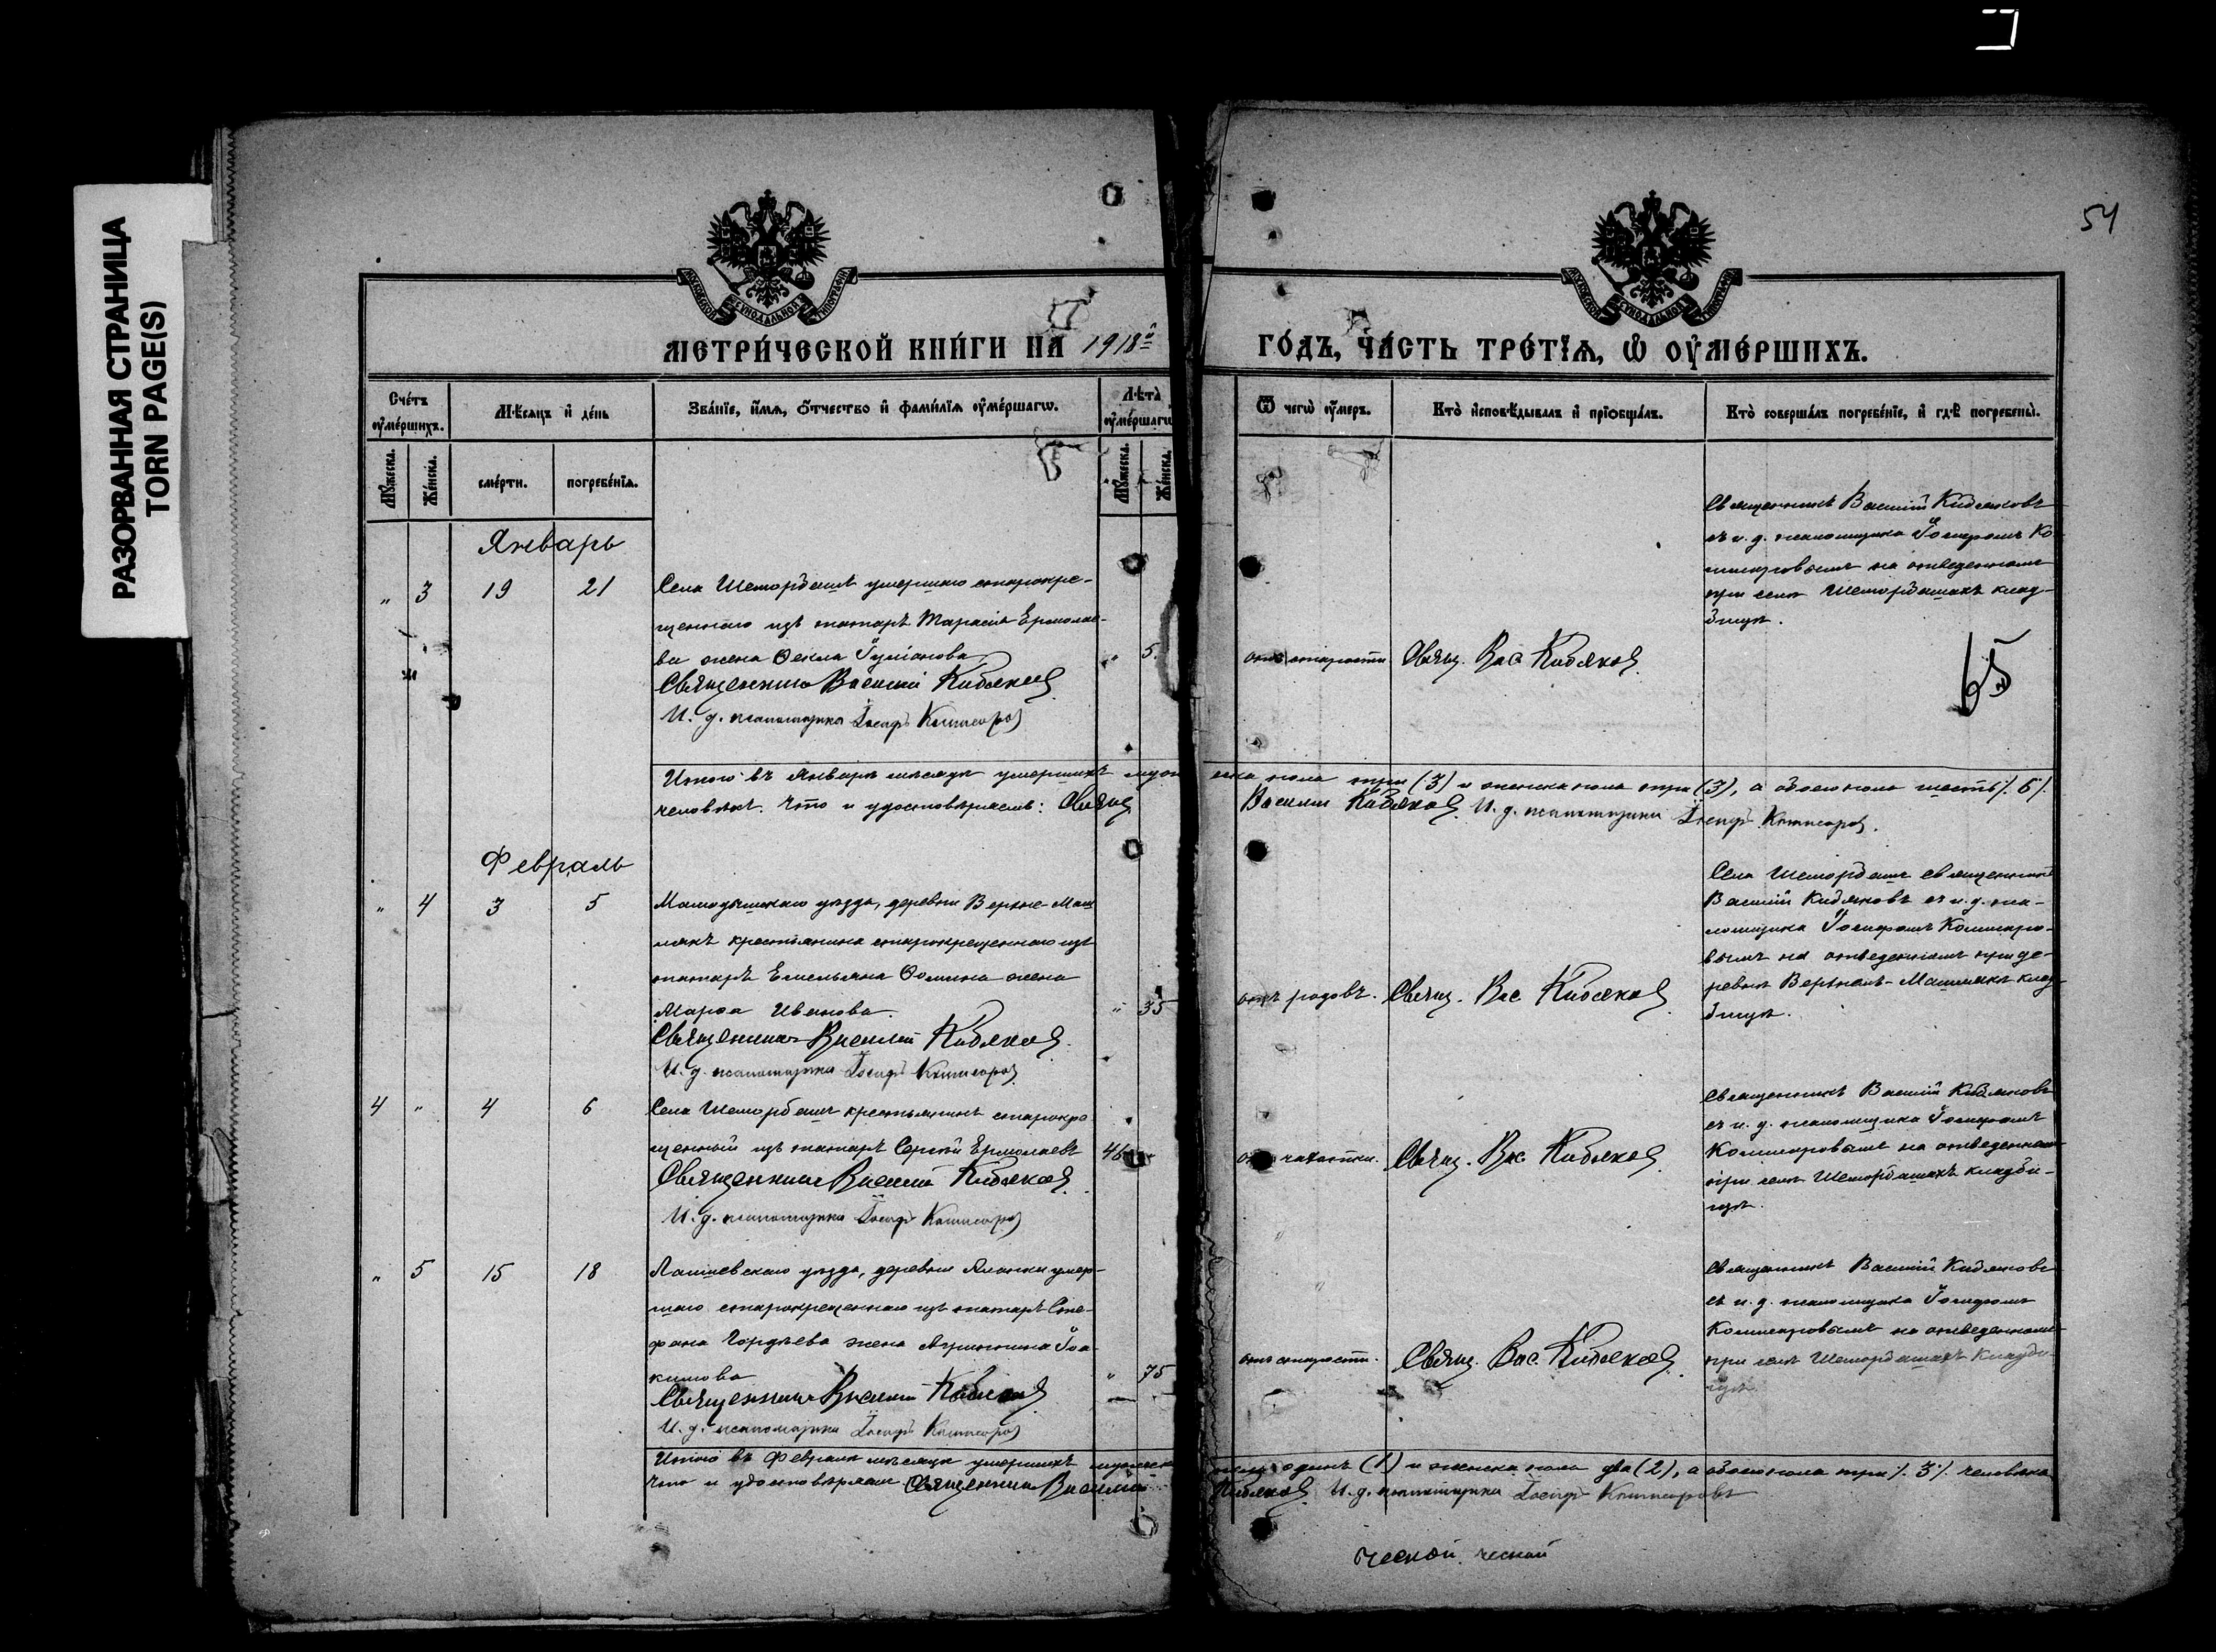 54
РАЗОРВАННАЯ СТРАНИЦА
TORN PAGE(S)
МОСКОВСКОЙ СѴНОДАЛЬНОЙ ТИПОГРАФІИ
МОСКОВСКОЙ СѴНОДАЛЬНОЙ ТИПОГРАФІИ
МЕТРИ́ЧЕСКОЙ КНИ́ГИ НА 1918й
ГО́ДЪ, ЧА́СТЬ ТРЕ́ТІѦ, Ѡ ОУ҆МЕ́РШИХЪ.
Сче́тъ оу҆ме́ршихъ.
Мѣ́сяцъ и҆ де́нь
Зва́нїе, и҆́мѧ, ѻ҆́тчество и҆ фами́лїѧ оу҆ме́ршагѡ.
Лѣ́та оу҆ме́ршагѡ
Ѿ чегѡ̀ оу҆́меръ.
Кто̀ и҆сповѣ́дывалъ и҆ прїѡбща́лъ.
Кто̀ соверша́лъ погребе́нїе, и҆ гдѣ̀ погребены̀.
Мꙋ́жеска.
Же́нска.
сме́рти.
погребе́нїѧ.
Мꙋ́жеска.
Же́нска.
Январь
" 3 19 21
Села Шеморбашъ умершаго старокре-
щеннаго изъ татаръ Тарасія Ермолае-
ва жена Ѳекла
" 5
Священникъ Василій Кибяковъ
И. д. псаломщика Іосифъ Комисаров
отъ старости
Свящ. Вас. Кибяков
Священникъ Василій Кибяковъ
съ и. д. псаломщика Іосифомъ Ко
мисаровымъ на отведенномъ
при селѣ Шеморбашахъ клад-
бищѣ.
65
Итого въ Январѣ мѣсяцѣ умершихъ мужеска пола три (3) и женска пола три (3), а обоего пола шесть /. 6 /.
человѣкъ. Что и удостовѣряемъ: Свящ. Василій Кибяков. И. д. псаломщика Іосифъ Комисаров.
Февраль
" 4 3 5
Мамадышскаго уѣзда, деревни Верхне-Маш
лякъ крестьянина старокрещеннаго изъ
татаръ Емельяна Ѳомина жена
Марѳа Иванова.
" 35
Священникъ Василій Кибяков.
И. д. псаломщика Іосифъ Комисаров
отъ родовъ.
Свящ. Вас. Кибяков
Села Шеморбашъ священникъ
Василій Кибяковъ съ и. д. пса-
ломщика Іосифомъ Комисаро-
вымъ на отведенномъ при де-
ревнѣ Верхнемъ-Машлякѣ клад-
бищѣ.
4 " 4 6
Села Шеморбашъ крестьянинъ старокре
щенный изъ татаръ Сергѣй Ермолаевъ
46
Священникъ Василій Кибяков
И. д. псаломщика Іосифъ Комисаров
отъ чахотки.
Свящ. Вас. Кибяков
Священникъ Василій Кибяковъ
съ и. д. псаломщика Іосифомъ
Комисаровымъ на отведенномъ
при селѣ Шеморбашахъ кладби-
щѣ.
" 5 15 18
Лаишевскаго уѣзда, деревни Янасалы умер-
шаго старокрещеннаго изъ татаръ Сте-
фана Гордѣева жена Агриппина Іоа-
кимова
" 75
Священникъ Василій Кибяков
И. д. псаломщика Іосифъ Комисаров
отъ старости.
Свящ. Вас. Кибяков
Священникъ Василій Кибяковъ
съ и. д. псаломщика Іосифомъ
Комисаровымъ на отведенномъ
при селѣ Шеморбашахъ кладби-
щѣ.
Итого въ Февралѣ мѣсяцѣ умершихъ мужеска пола одинъ (1) и женска пола два (2), а обоего пола три /. 3 /. человѣка
Что и удостовѣряемъ Священникъ Василій Кибяков. И. д. псаломщика Іосифъ Комисаровъ
ческой. ческой